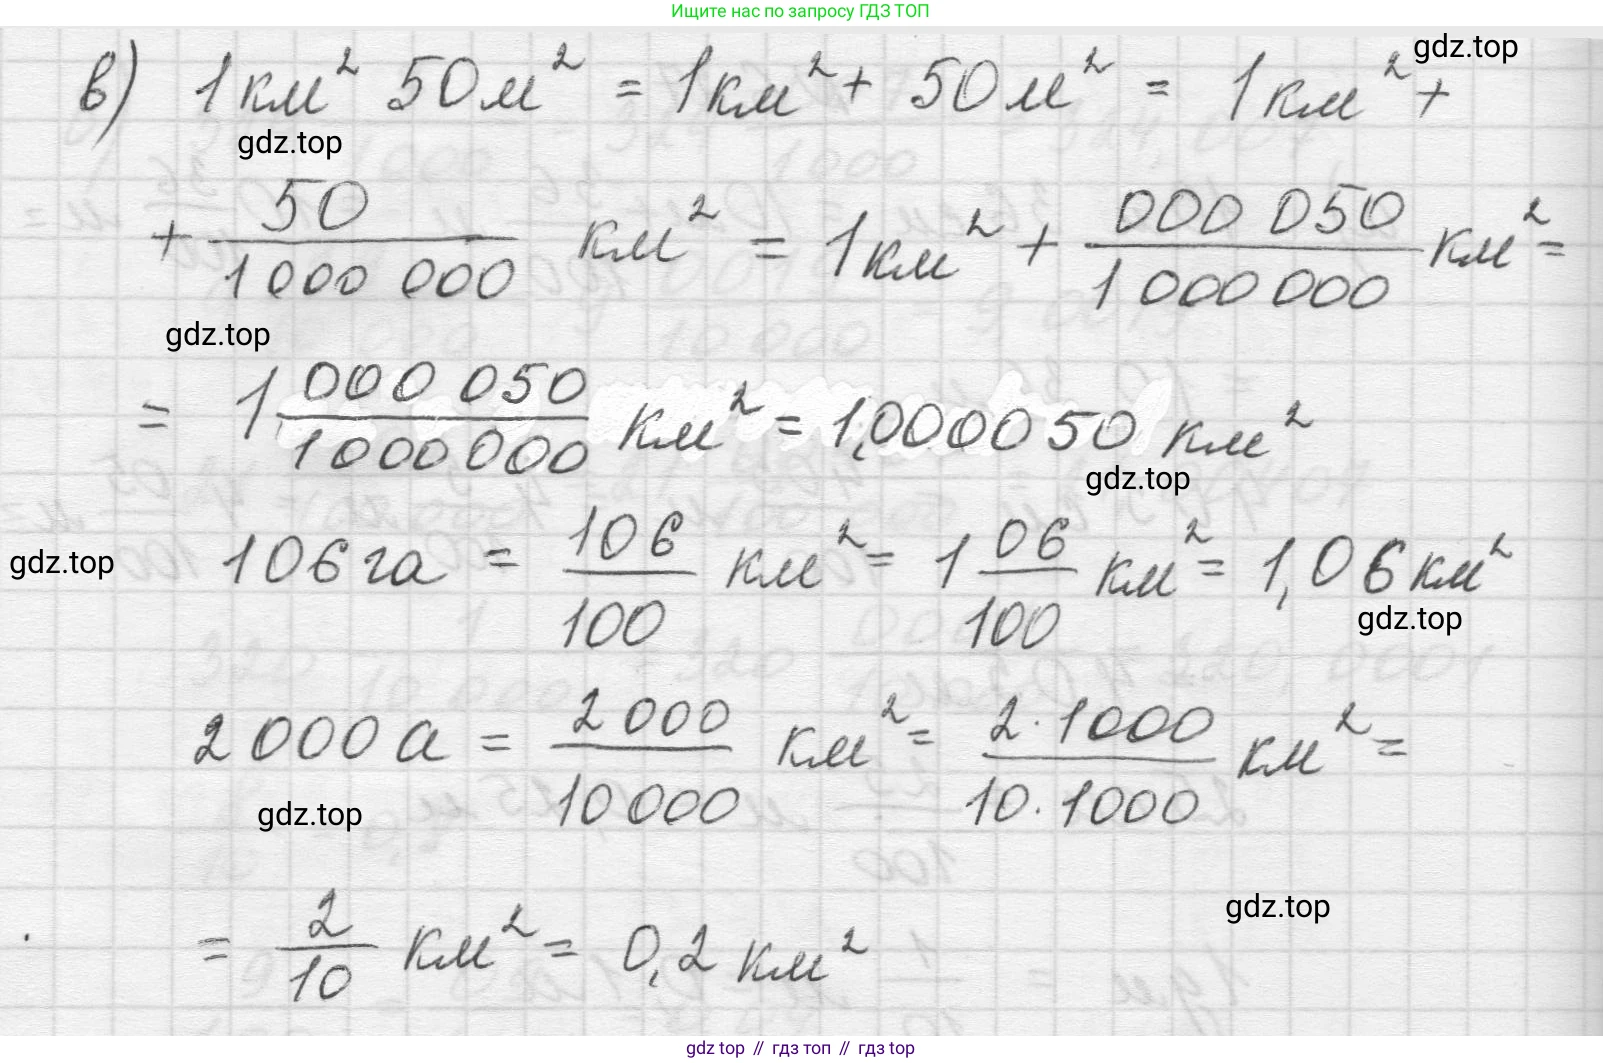 Ищите нас по запросу ГДЗ ТОП
gdz.top
в) 1 км² 50 м² = 1 км² + 50 м² = 1 км² +
gdz.top
+ 50/1 000 000 км² = 1 км² + 000 050/1 000 000 км² =
gdz.top
= 1 000 050/1 000 000 км² = 1,000050 км²
gdz.top
106 га = 106/100 км² = 1 06/100 км² = 1,06 км²
gdz.top
gdz.top
2 000 а = 2 000/10 000 км² = 2·1000/10·1000 км² =
gdz.top
gdz.top
= 2/10 км² = 0,2 км²
gdz top // гдз топ // gdz top